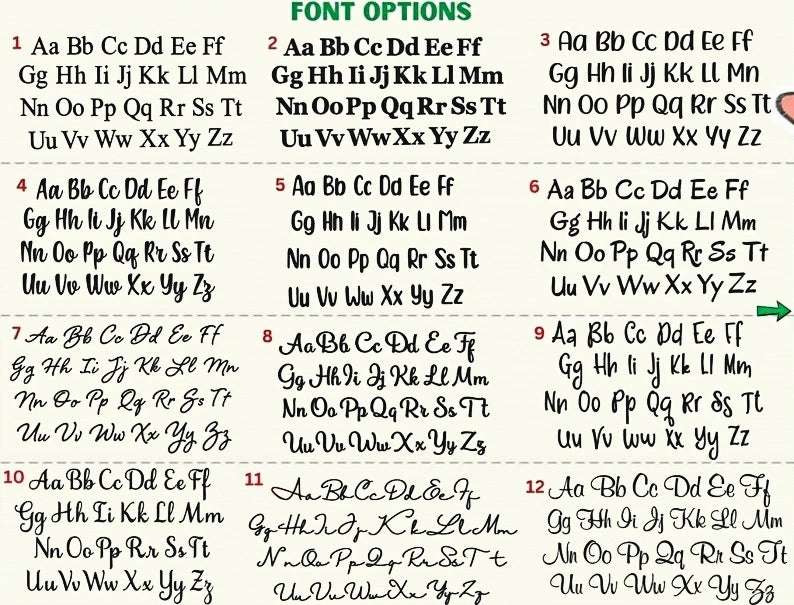 FONT OPTIONS
1 Aa Bb Cc Dd Ee Ff
Gg Hh Ii Jj Kk Ll Mm
Nn Oo Pp Qq Rr Ss Tt
Uu Vv Ww Xx Yy Zz
2 Aa Bb Cc Dd Ee Ff
Gg Hh Ii Jj Kk Ll Mm
Nn Oo Pp Qq Rr Ss Tt
Uu Vv Ww Xx Yy Zz
3 Aa Bb Cc Dd Ee Ff
Gg Hh Ii Jj Kk Ll Mn
Nn Oo Pp Qq Rr Ss Tt
Uu Vv Ww Xx Yy Zz
4 Aa Bb Cc Dd Ee Ff
Gg Hh Ii Jj Kk Ll Mn
Nn Oo Pp Qq Rr Ss Tt
Uu Vv Ww Xx Yy Zz
5 Aa Bb Cc Dd Ee Ff
Gg Hh Ii Jj Kk Ll Mm
Nn Oo Pp Qq Rr Ss Tt
Uu Vv Ww Xx Yy Zz
6 Aa Bb Cc Dd Ee Ff
Gg Hh Ii Jj Kk Ll Mm
Nn Oo Pp Qq Rr Ss Tt
Uu Vv Ww Xx Yy Zz
7 Aa Bb Cc Dd Ee Ff
Gg Hh Ii Jj Kk Ll Mn
Nn Oo Pp Qq Rr Ss Tt
Uu Vv Ww Xx Yy Zz
8 Aa Bb Cc Dd Ee Ff
Gg Hh Ii Jj Kk Ll Mm
Nn Oo Pp Qq Rr Ss Tt
Uu Vv Ww Xx Yy Zz
9 Aa Bb Cc Dd Ee Ff
Gg Hh Ii Jj Kk Ll Mm
Nn Oo Pp Qq Rr Ss Tt
Uu Vv Ww Xx Yy Zz
10 Aa Bb Cc Dd Ee Ff
Gg Hh Ii Kk Ll Mm
Nn Oo Pp Rr Ss Tt
Uu Vv Ww Xx Yy Zz
11 Aa Bb Cc Dd Ee Ff
Gg Hh Ii Jj Kk Ll Mm
Nn Oo Pp Qq Rr Ss Tt
Uu Vv Ww Xx Yy Zz
12 Aa Bb Cc Dd Ee Ff
Gg Hh Ii Jj Kk Ll Mm
Nn Oo Pp Qq Rr Ss Tt
Uu Vv Ww Xx Yy Zz